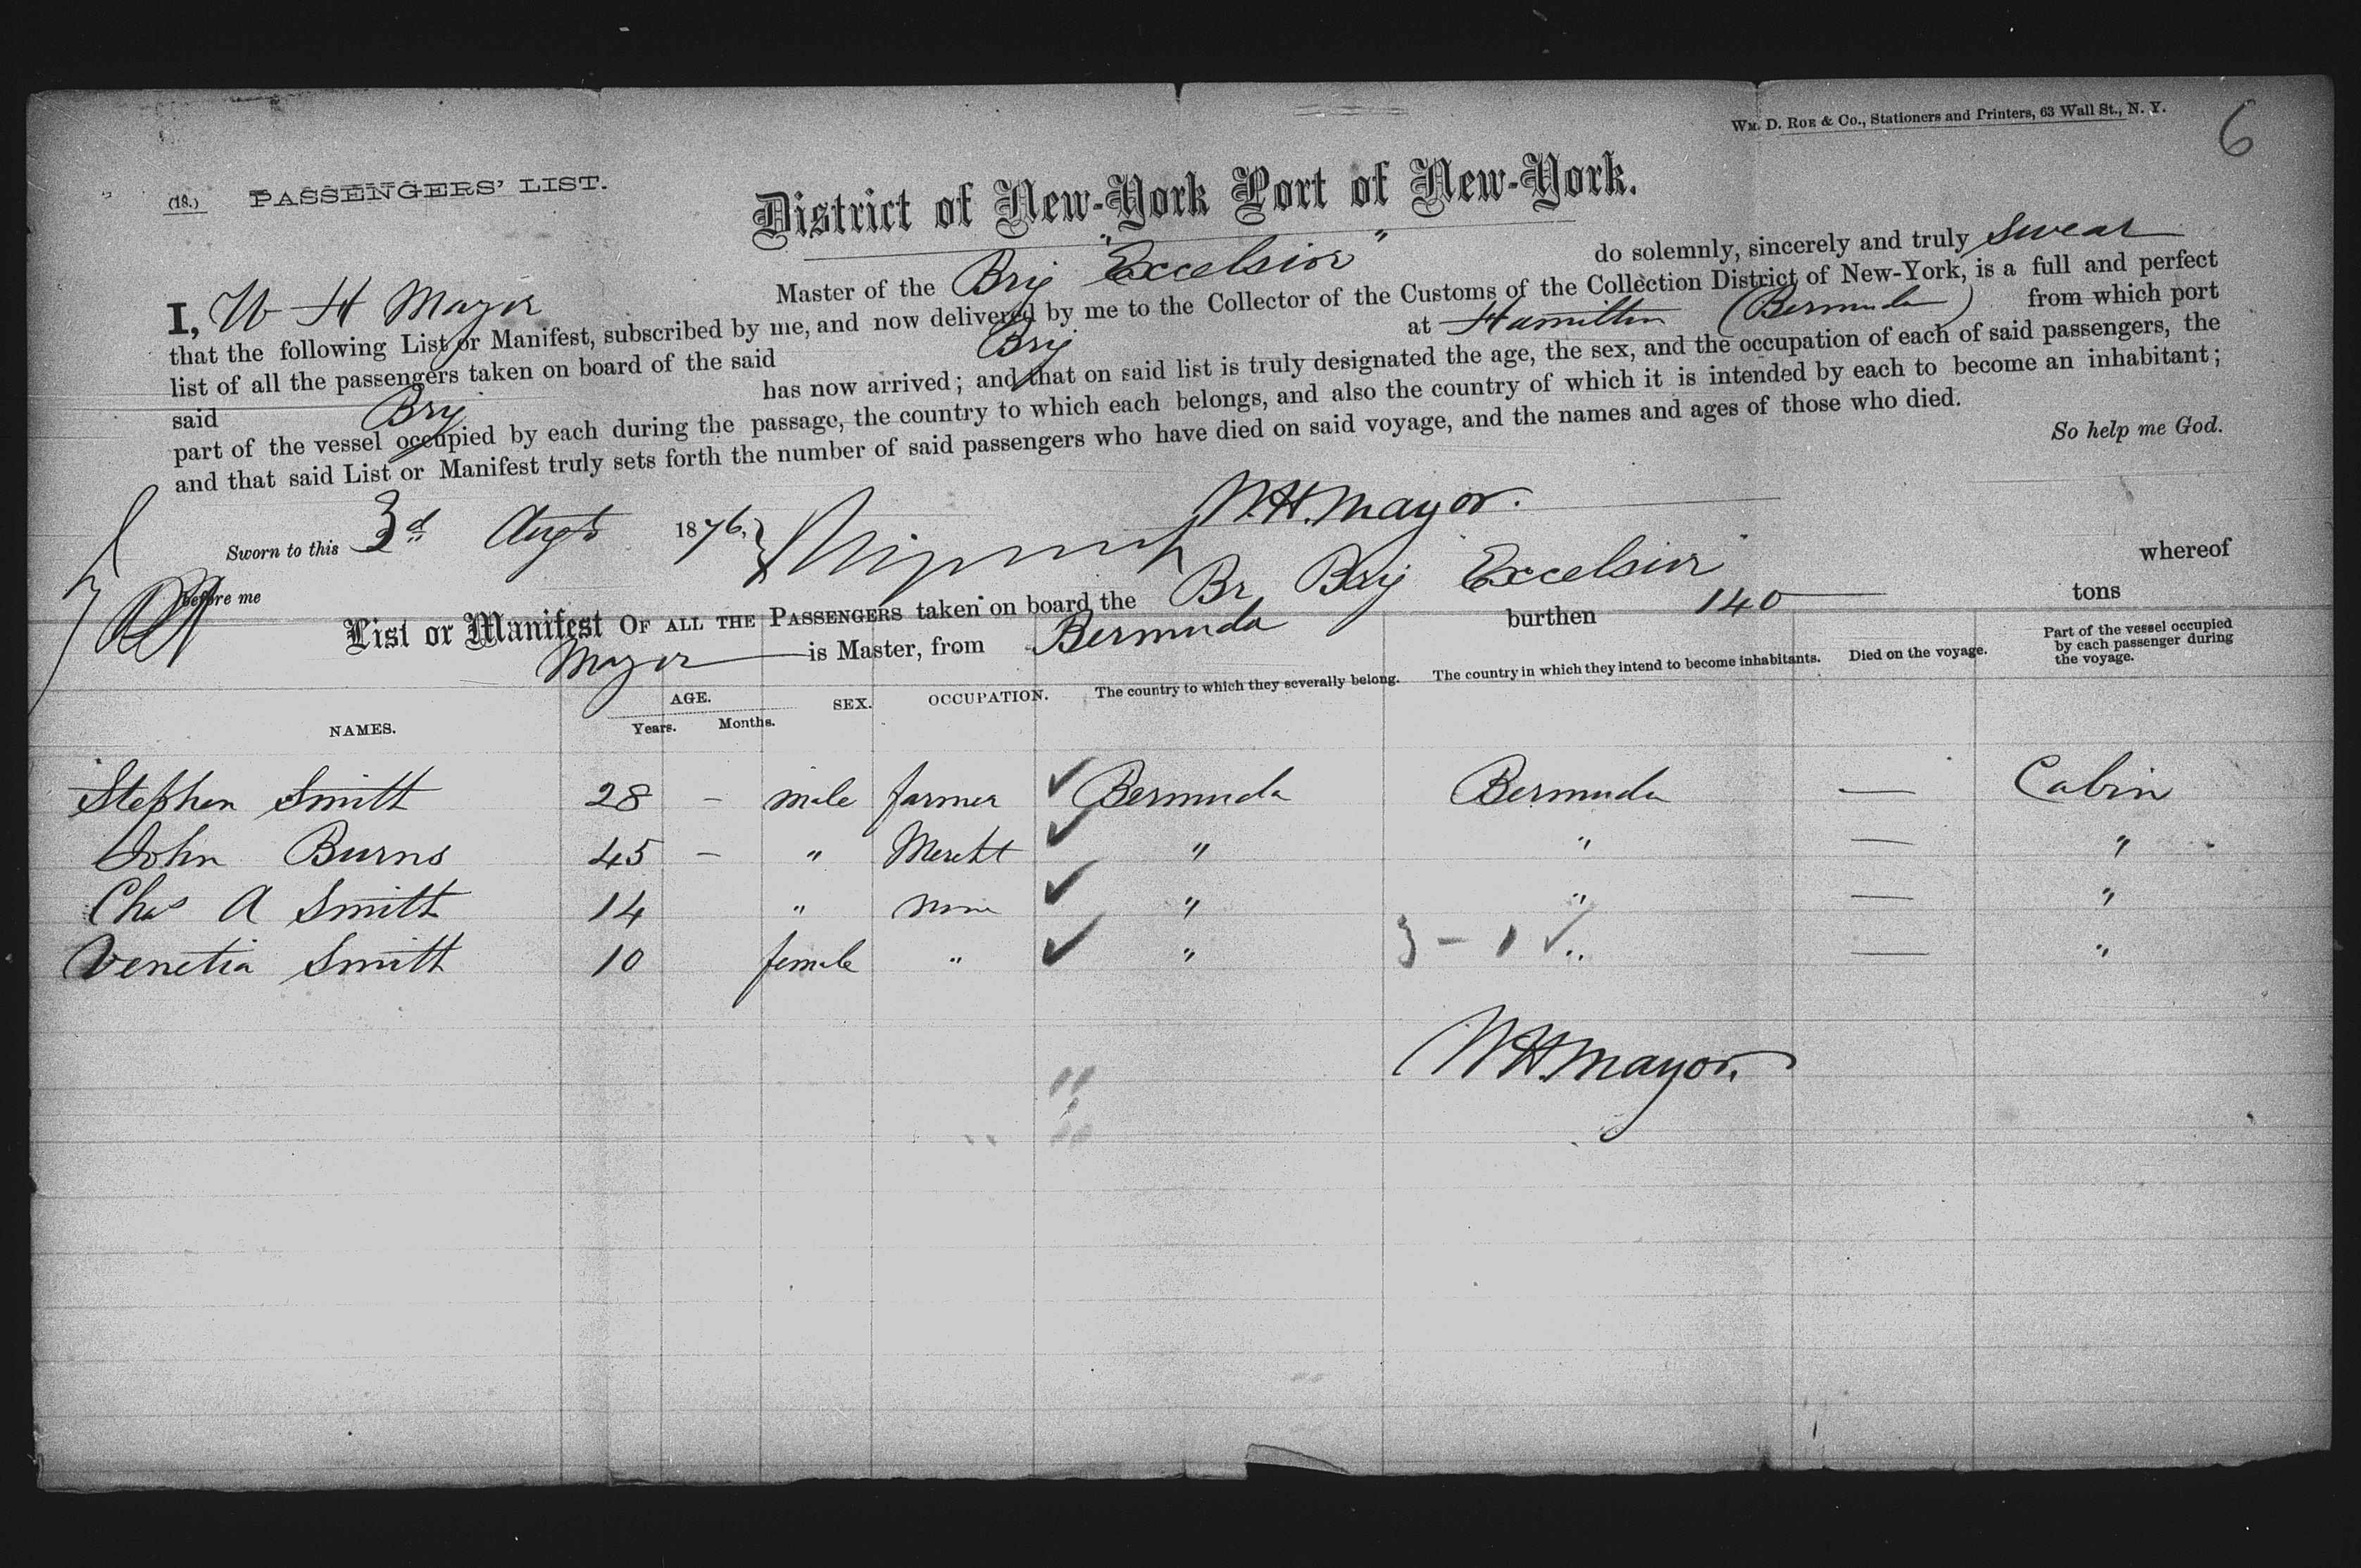 WM. D. ROE & CO., Stationers and Printers, 63 Wall St., N. Y.
6
(18.) PASSENGERS' LIST.
District of New-York Port of New-York.
I, W H Mayor Master of the Brig "Excelsior" do solemnly, sincerely and truly swear
that the following List or Manifest, subscribed by me, and now delivered by me to the Collector of the Customs of the Collection District of New-York, is a full and perfect
list of all the passengers taken on board of the said Brig at Hamilton (Bermuda) from which port
said Brig has now arrived; and that on said list is truly designated the age, the sex, and the occupation of each of said passengers, the
part of the vessel occupied by each during the passage, the country to which each belongs, and also the country of which it is intended by each to become an inhabitant;
and that said List or Manifest truly sets forth the number of said passengers who have died on said voyage, and the names and ages of those who died.
So help me God.
W.H. Mayor.
Sworn to this 3d Augt 1876,
before me
List or Manifest OF ALL THE PASSENGERS taken on board the Br Brig Excelsior whereof
Mayor is Master, from Bermuda burthen 140 tons
NAMES. AGE. Years. Months. SEX. OCCUPATION. The country to which they severally belong. The country in which they intend to become inhabitants. Died on the voyage. Part of the vessel occupied by each passenger during the voyage.
Stephen Smith 28 – male farmer ✓ Bermuda Bermuda — Cabin
John Burns 45 – " Mercht ✓ " " — "
Chas A Smith 14 " none ✓ " " — "
Venetia Smith 10 female " ✓ " 3 – 1 ✓ " — "
W H Mayor.